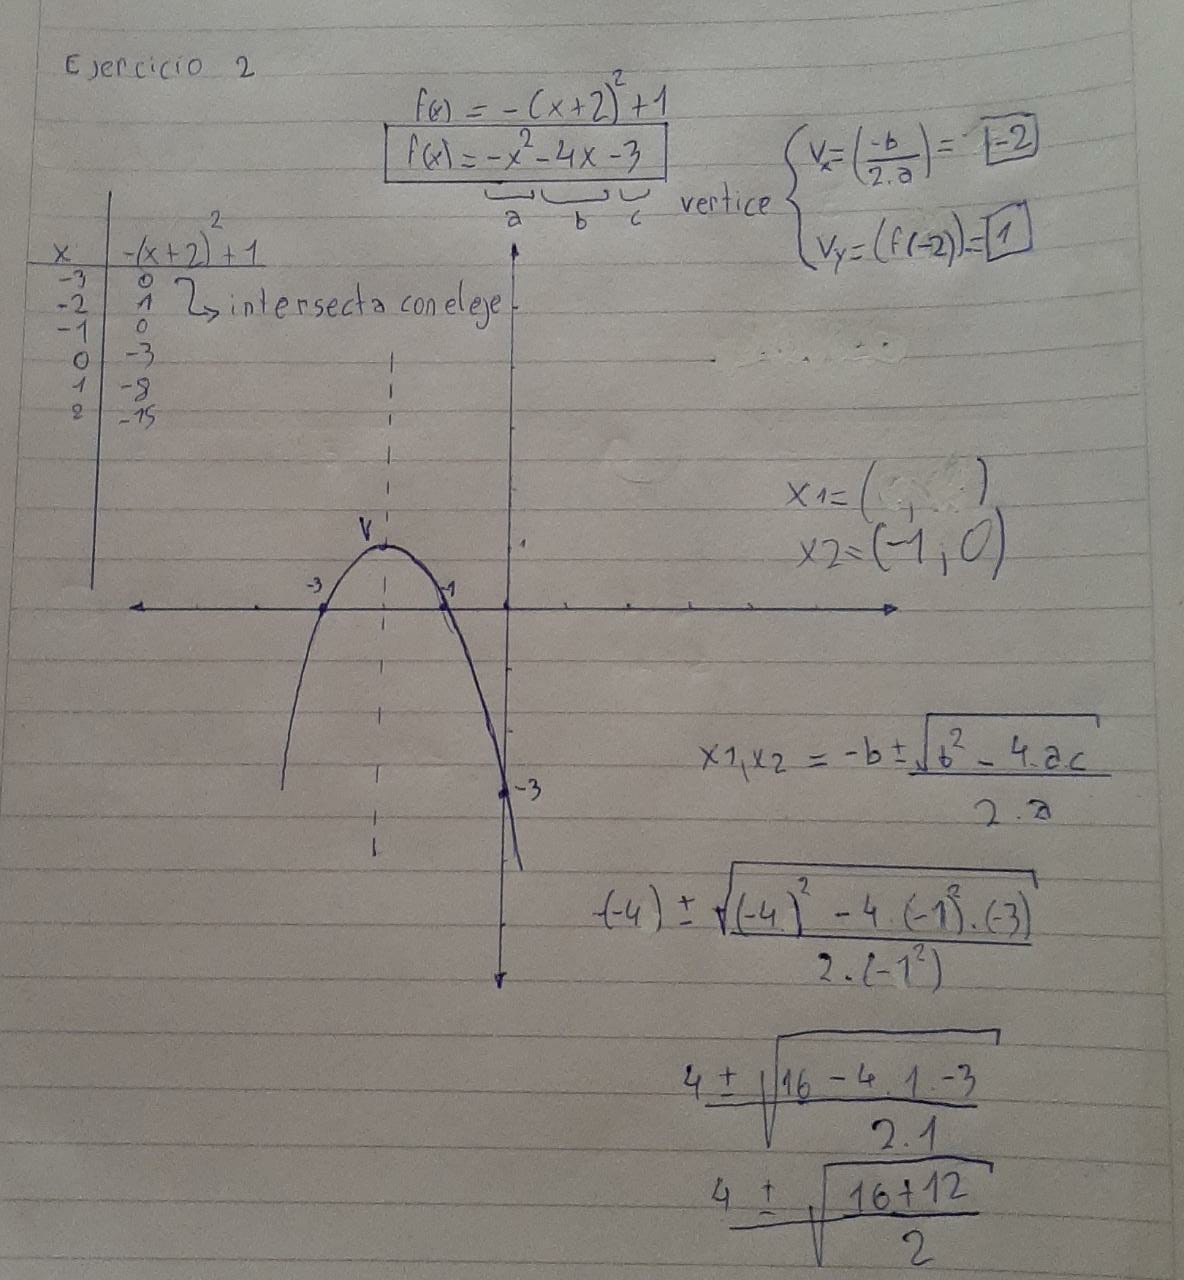 Ejercicio 2
f(x) = -(x+2)² + 1
f(x) = -x² - 4x - 3
a b c
vertice
Vx = (-b/2.a) = -2
Vy = (f(-2)) = 1
x | -(x+2)² + 1
-3 | 0
-2 | 1
-1 | 0
0 | -3
1 | -8
2 | -15
intersecta con el eje
V
1
-3 -1
-3
x1 = ( , )
x2 = (-1 ; 0)
x1, x2 = -b ± √b² - 4.ac
2.a
-(-4) ± √(-4)² - 4.(-1²).(-3)
2.(-1²)
4 ± √16 - 4.1.-3
2.1
4 ± √16+12
2